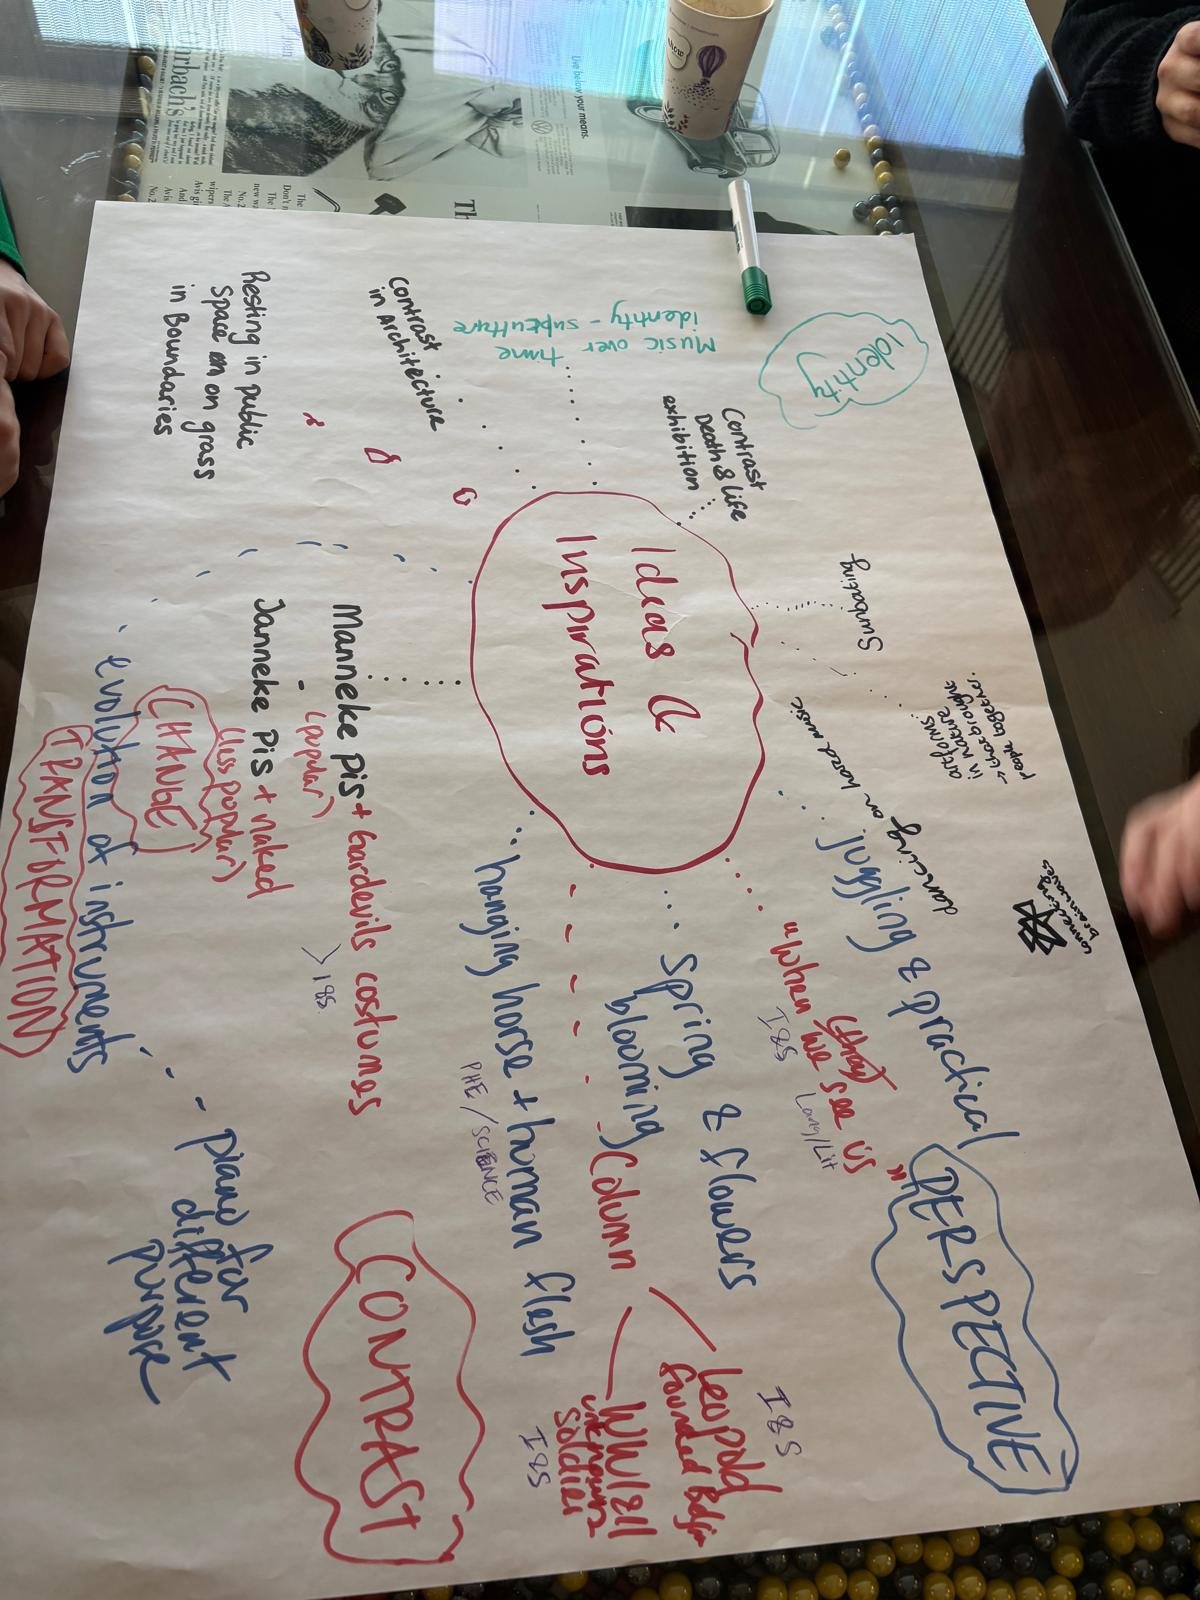 Ideas &
Inspirations
Identity
Music over time
identity - subculture
Contrast
Death & life
exhibition
Contrast
in Architecture
Resting in public
space on on grass
in Boundaries
Sunbathing
artforms
in nature
→ that brought
people together.
connecting
brainwaves
dancing on hared music
juggling & practical
PERSPECTIVE
"When watch
(fight)
we see us"
S&I
Lang/Lit
Spring & flowers
blooming
Column
Leopold
founded Belgi
S&I
WW1&11
unknown
Soldier
S&I
hanging horse + human flesh
PHE / SCIENCE
CONTRAST
Manneke pis + Gardevils costumes
(popular)
I&S.
Janneke pis + naked
(less popular)
CHANGE
evolution of instruments
TRANSFORMATION
piano for
different
purpose
Live below your means.
The